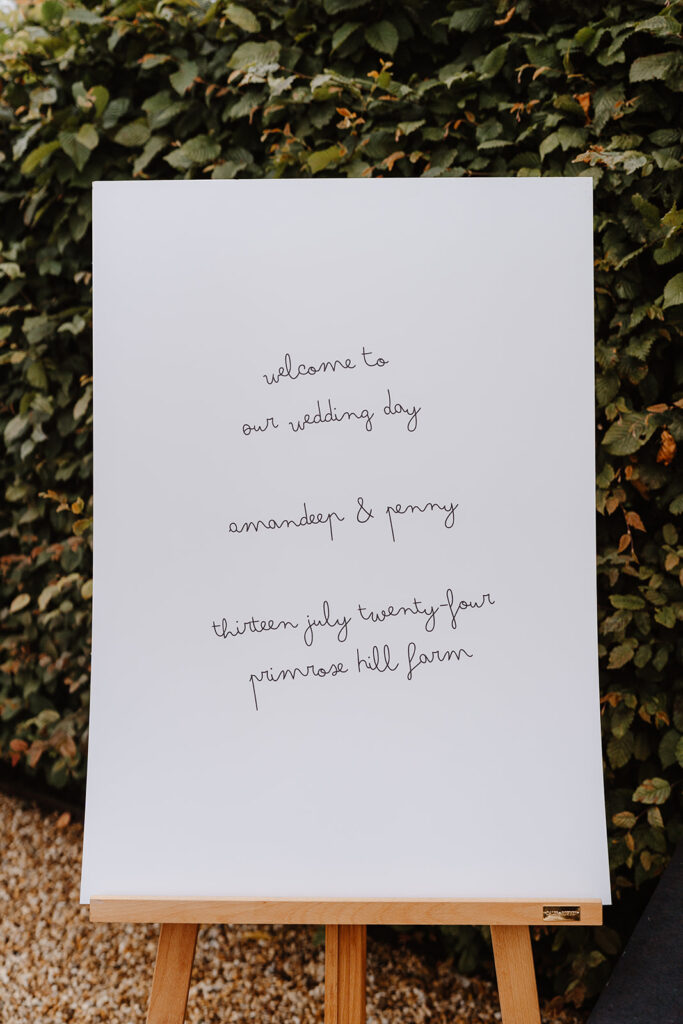 welcome to
our wedding day
amandeep & penny
thirteen july twenty-four
primrose hill farm